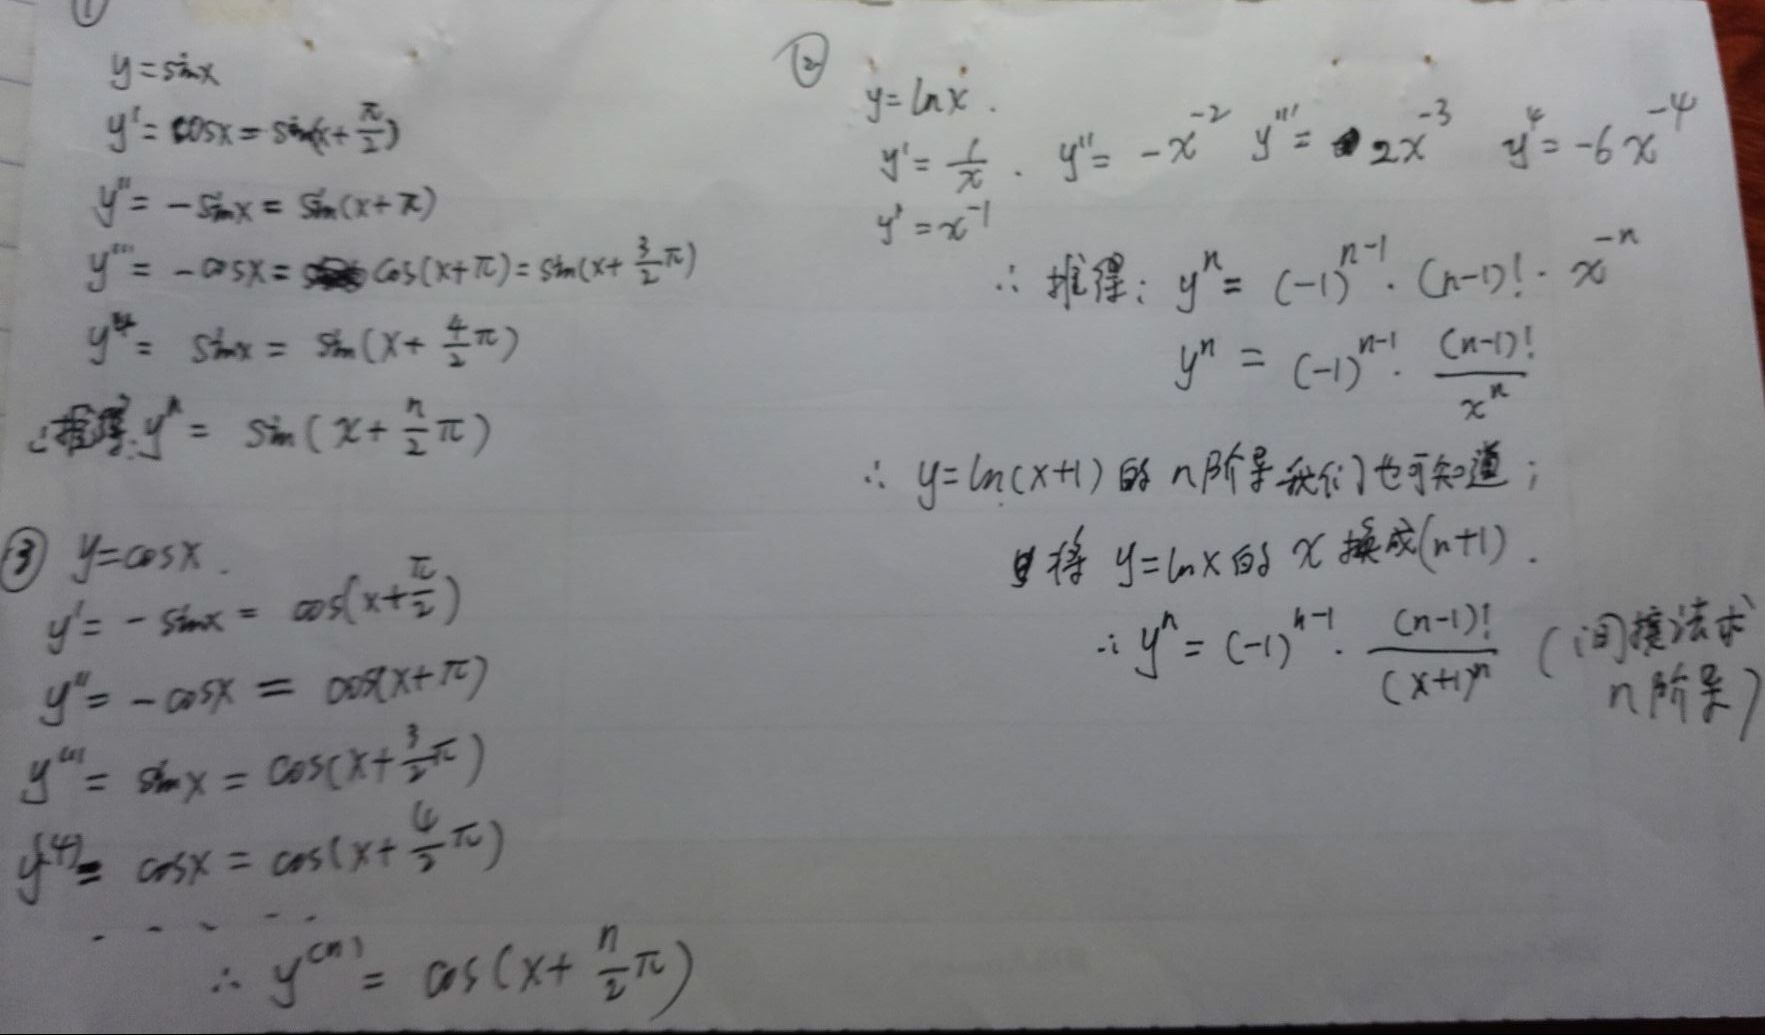 ①
y=sinx
y'=cosx=sin(x+π/2)
y''=-sinx=sin(x+π)
y'''=-cosx=cos(x+π)=sin(x+3/2π)
y⁴=sinx=sin(x+4/2π)
∴推得:yⁿ=sin(x+n/2π)
②
y=lnx.
y'=1/x. y''=-x⁻² y'''=2x⁻³ y⁴=-6x⁻⁴
y'=x⁻¹
∴推得:yⁿ=(-1)ⁿ⁻¹·(n-1)!·x⁻ⁿ
yⁿ=(-1)ⁿ⁻¹·(n-1)!/xⁿ
∴y=ln(x+1)的n阶导我们也可知道;
将y=lnx的x换成(n+1).
∴yⁿ=(-1)ⁿ⁻¹·(n-1)!/(x+1)ⁿ(间接法求
n阶导)
③ y=cosx.
y'=-sinx=cos(x+π/2)
y''=-cosx=cos(x+π)
y'''=sinx=cos(x+3/2π)
y⁽⁴⁾=cosx=cos(x+4/2π)
.....
∴y⁽ⁿ⁾=cos(x+n/2π)